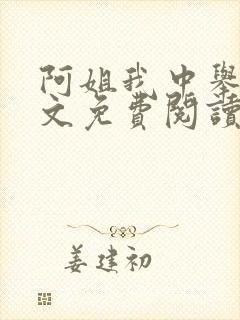 阿姐我中舉
文免費閱讀
姜建初